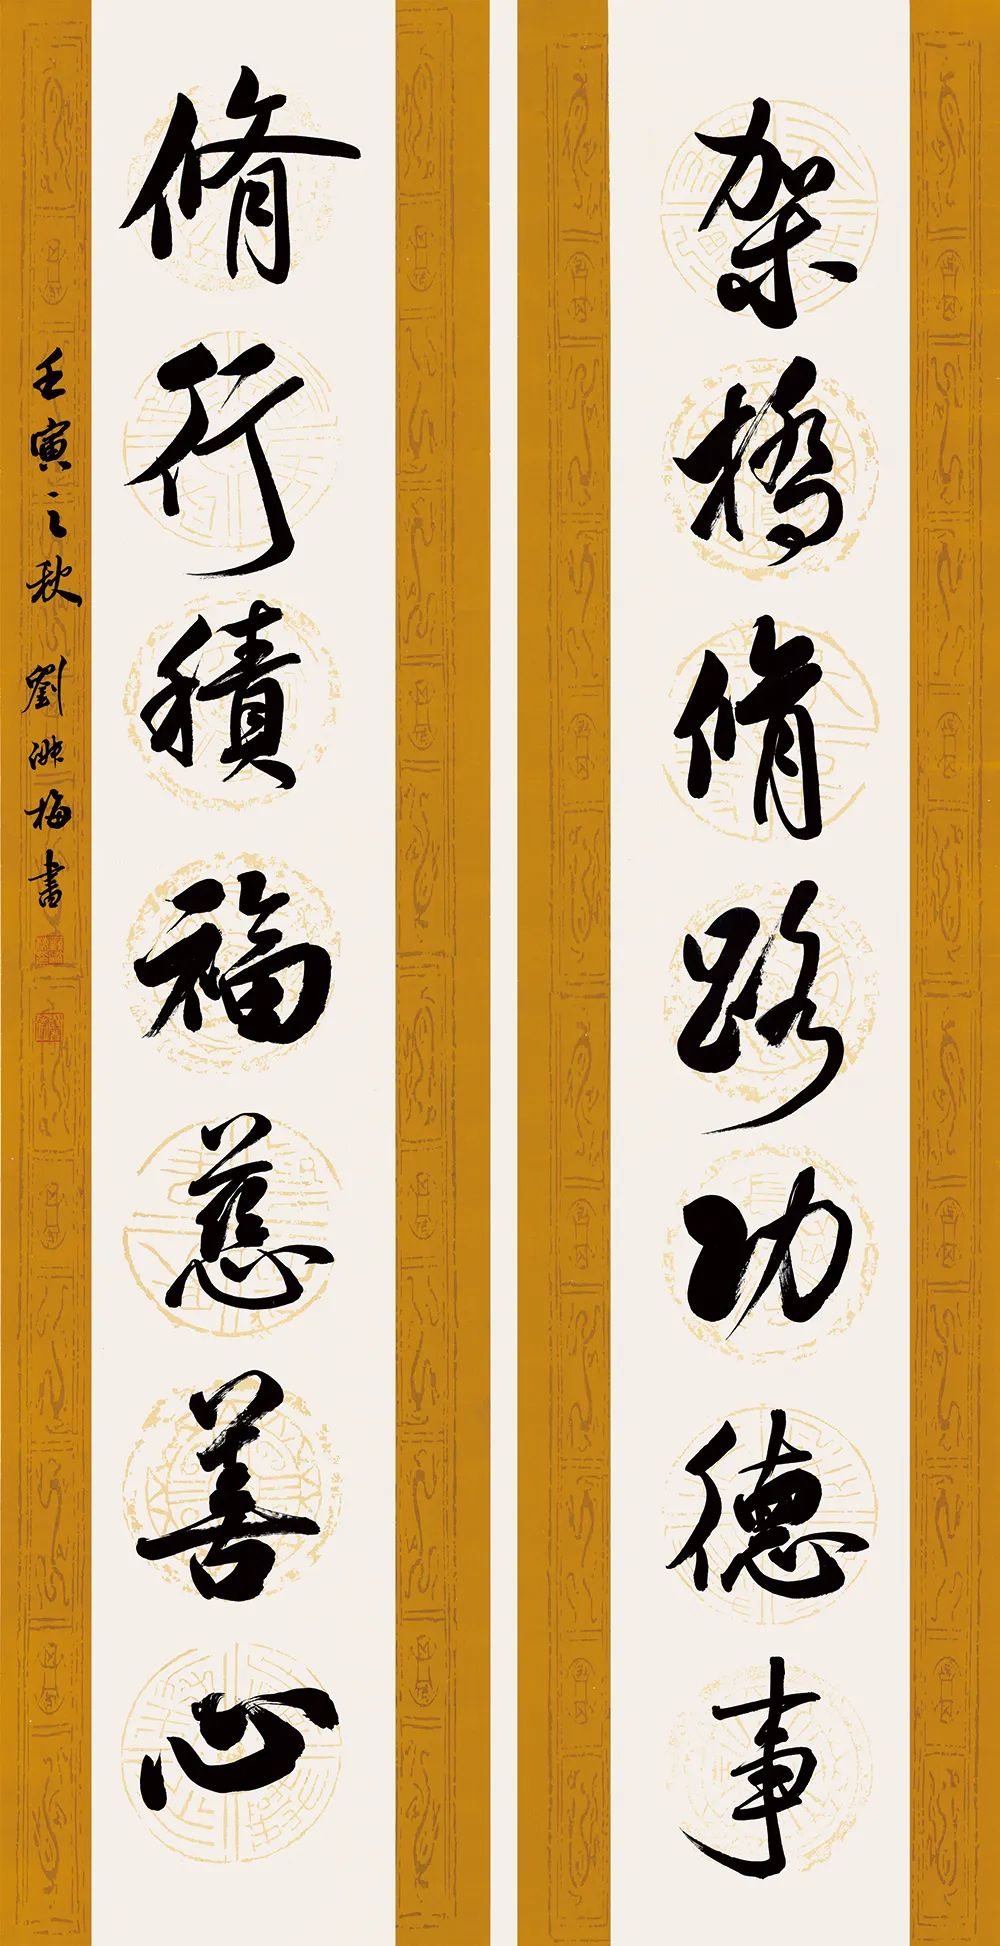 架橋脩路功德事
脩行積福慈善心
壬寅之秋 劉淑梅書